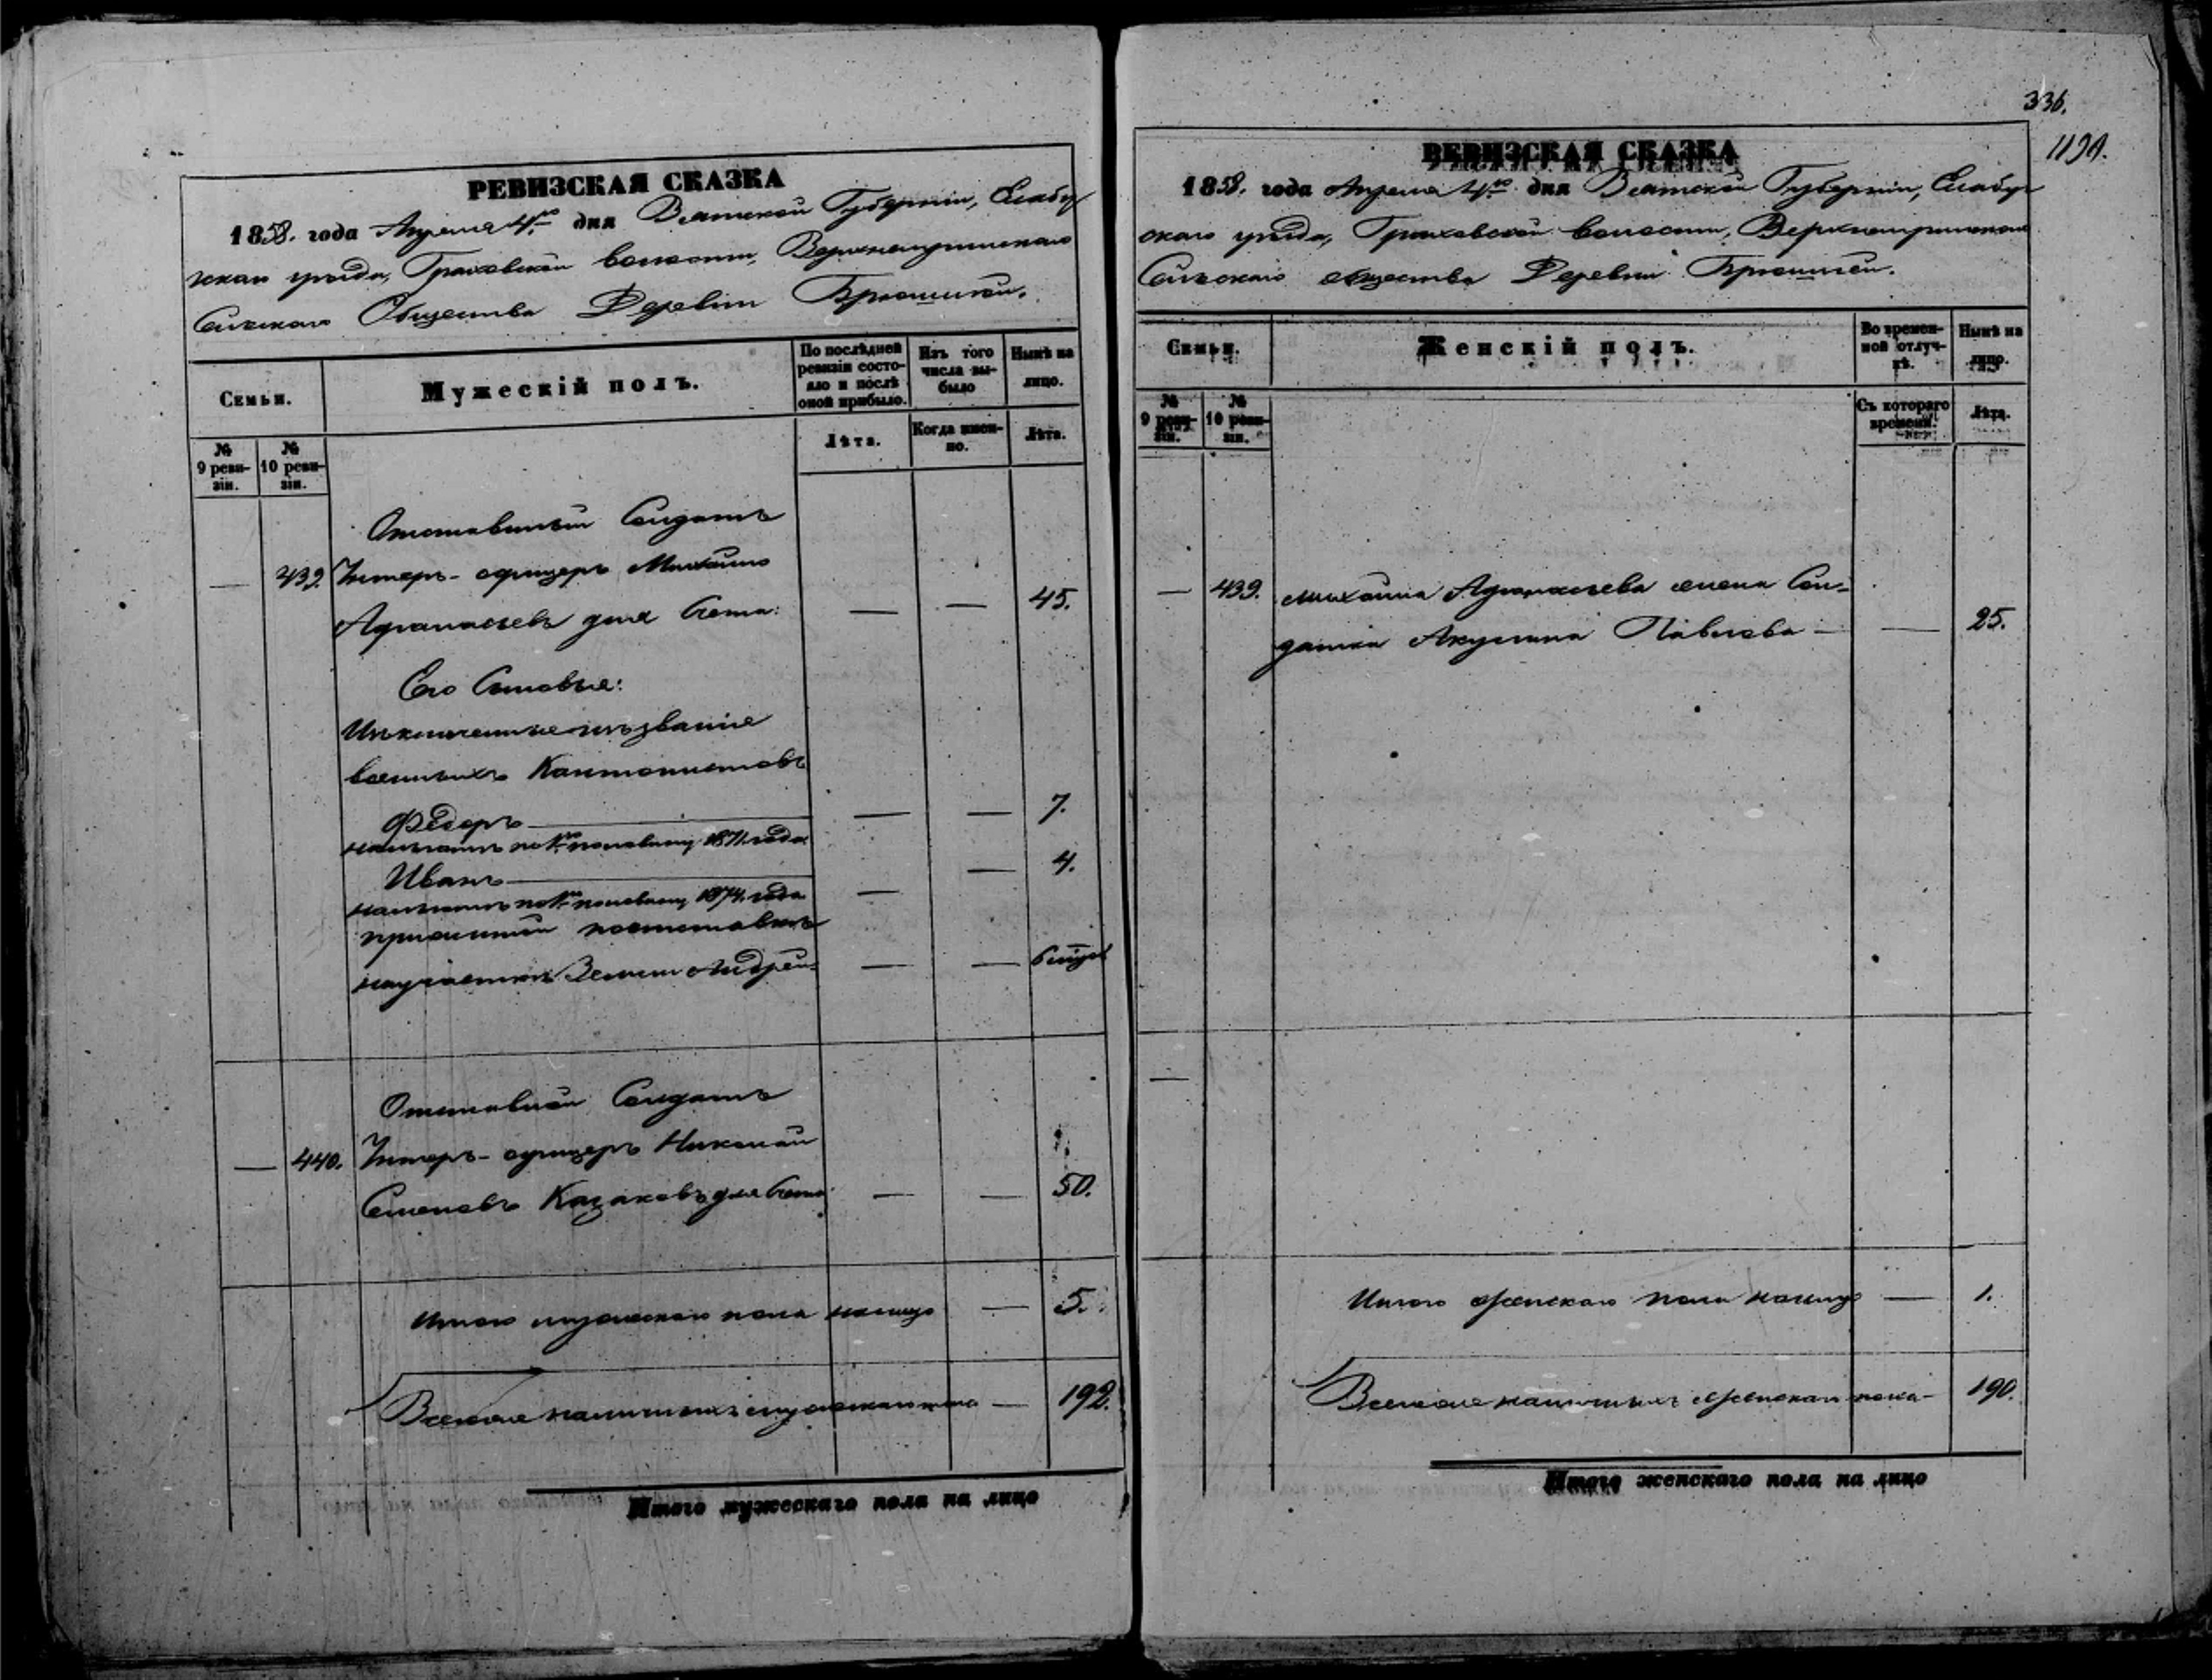 РЕВИЗСКАЯ СКАЗКА
1858. года Апреля 4го дня Вятской Губерніи, Елабу
жскаго уѣзда, Граховской волости,
Сельскаго Общества Деревни
Семьи.
Мужескій полъ.
По послѣдней ревизіи состояло и послѣ оной прибыло.
Изъ того числа выбыло
Нынѣ на лицо.
№ 9 ревизіи.
№ 10 ревизіи.
Лѣта.
Когда именно.
Лѣта.
Солдатъ
— 439. Унтеръ-офицеръ Михайло
Афанасьевъ для счета: — — 45.
Его Сыновья:
Исключенные изъ званія
военныхъ Кантонистовъ
Федоръ — — — 7.
половину 1871. года
Иванъ — — — 4.
половину 1874. года
— —
Отставной Солдатъ
— 440. Унтеръ-офицеръ Николай
Семеновъ Казаковъ для счета — — 50.
Итого мужескаго пола налицо — 5.
Всего наличныхъ мужескаго пола — 192.
Итого мужескаго пола на лицо
336.
РЕВИЗСКАЯ СКАЗКА
1858. года Апреля 4го дня Вятской Губерніи, Елабуж
скаго уѣзда, Граховской волости,
Сельскаго общества Деревни
Семьи.
Женскій полъ.
Во временной отлучкѣ.
Нынѣ на лицо.
№ 9 ревизіи.
№ 10 ревизіи.
Съ котораго времени.
Лѣта.
— 439. Михаила Афанасьева жена Сол-
датка Акулина Павлова — — 25.
—
Итого женскаго пола налицо — 1.
Всего наличныхъ женскаго пола — 190.
Итого женскаго пола на лицо